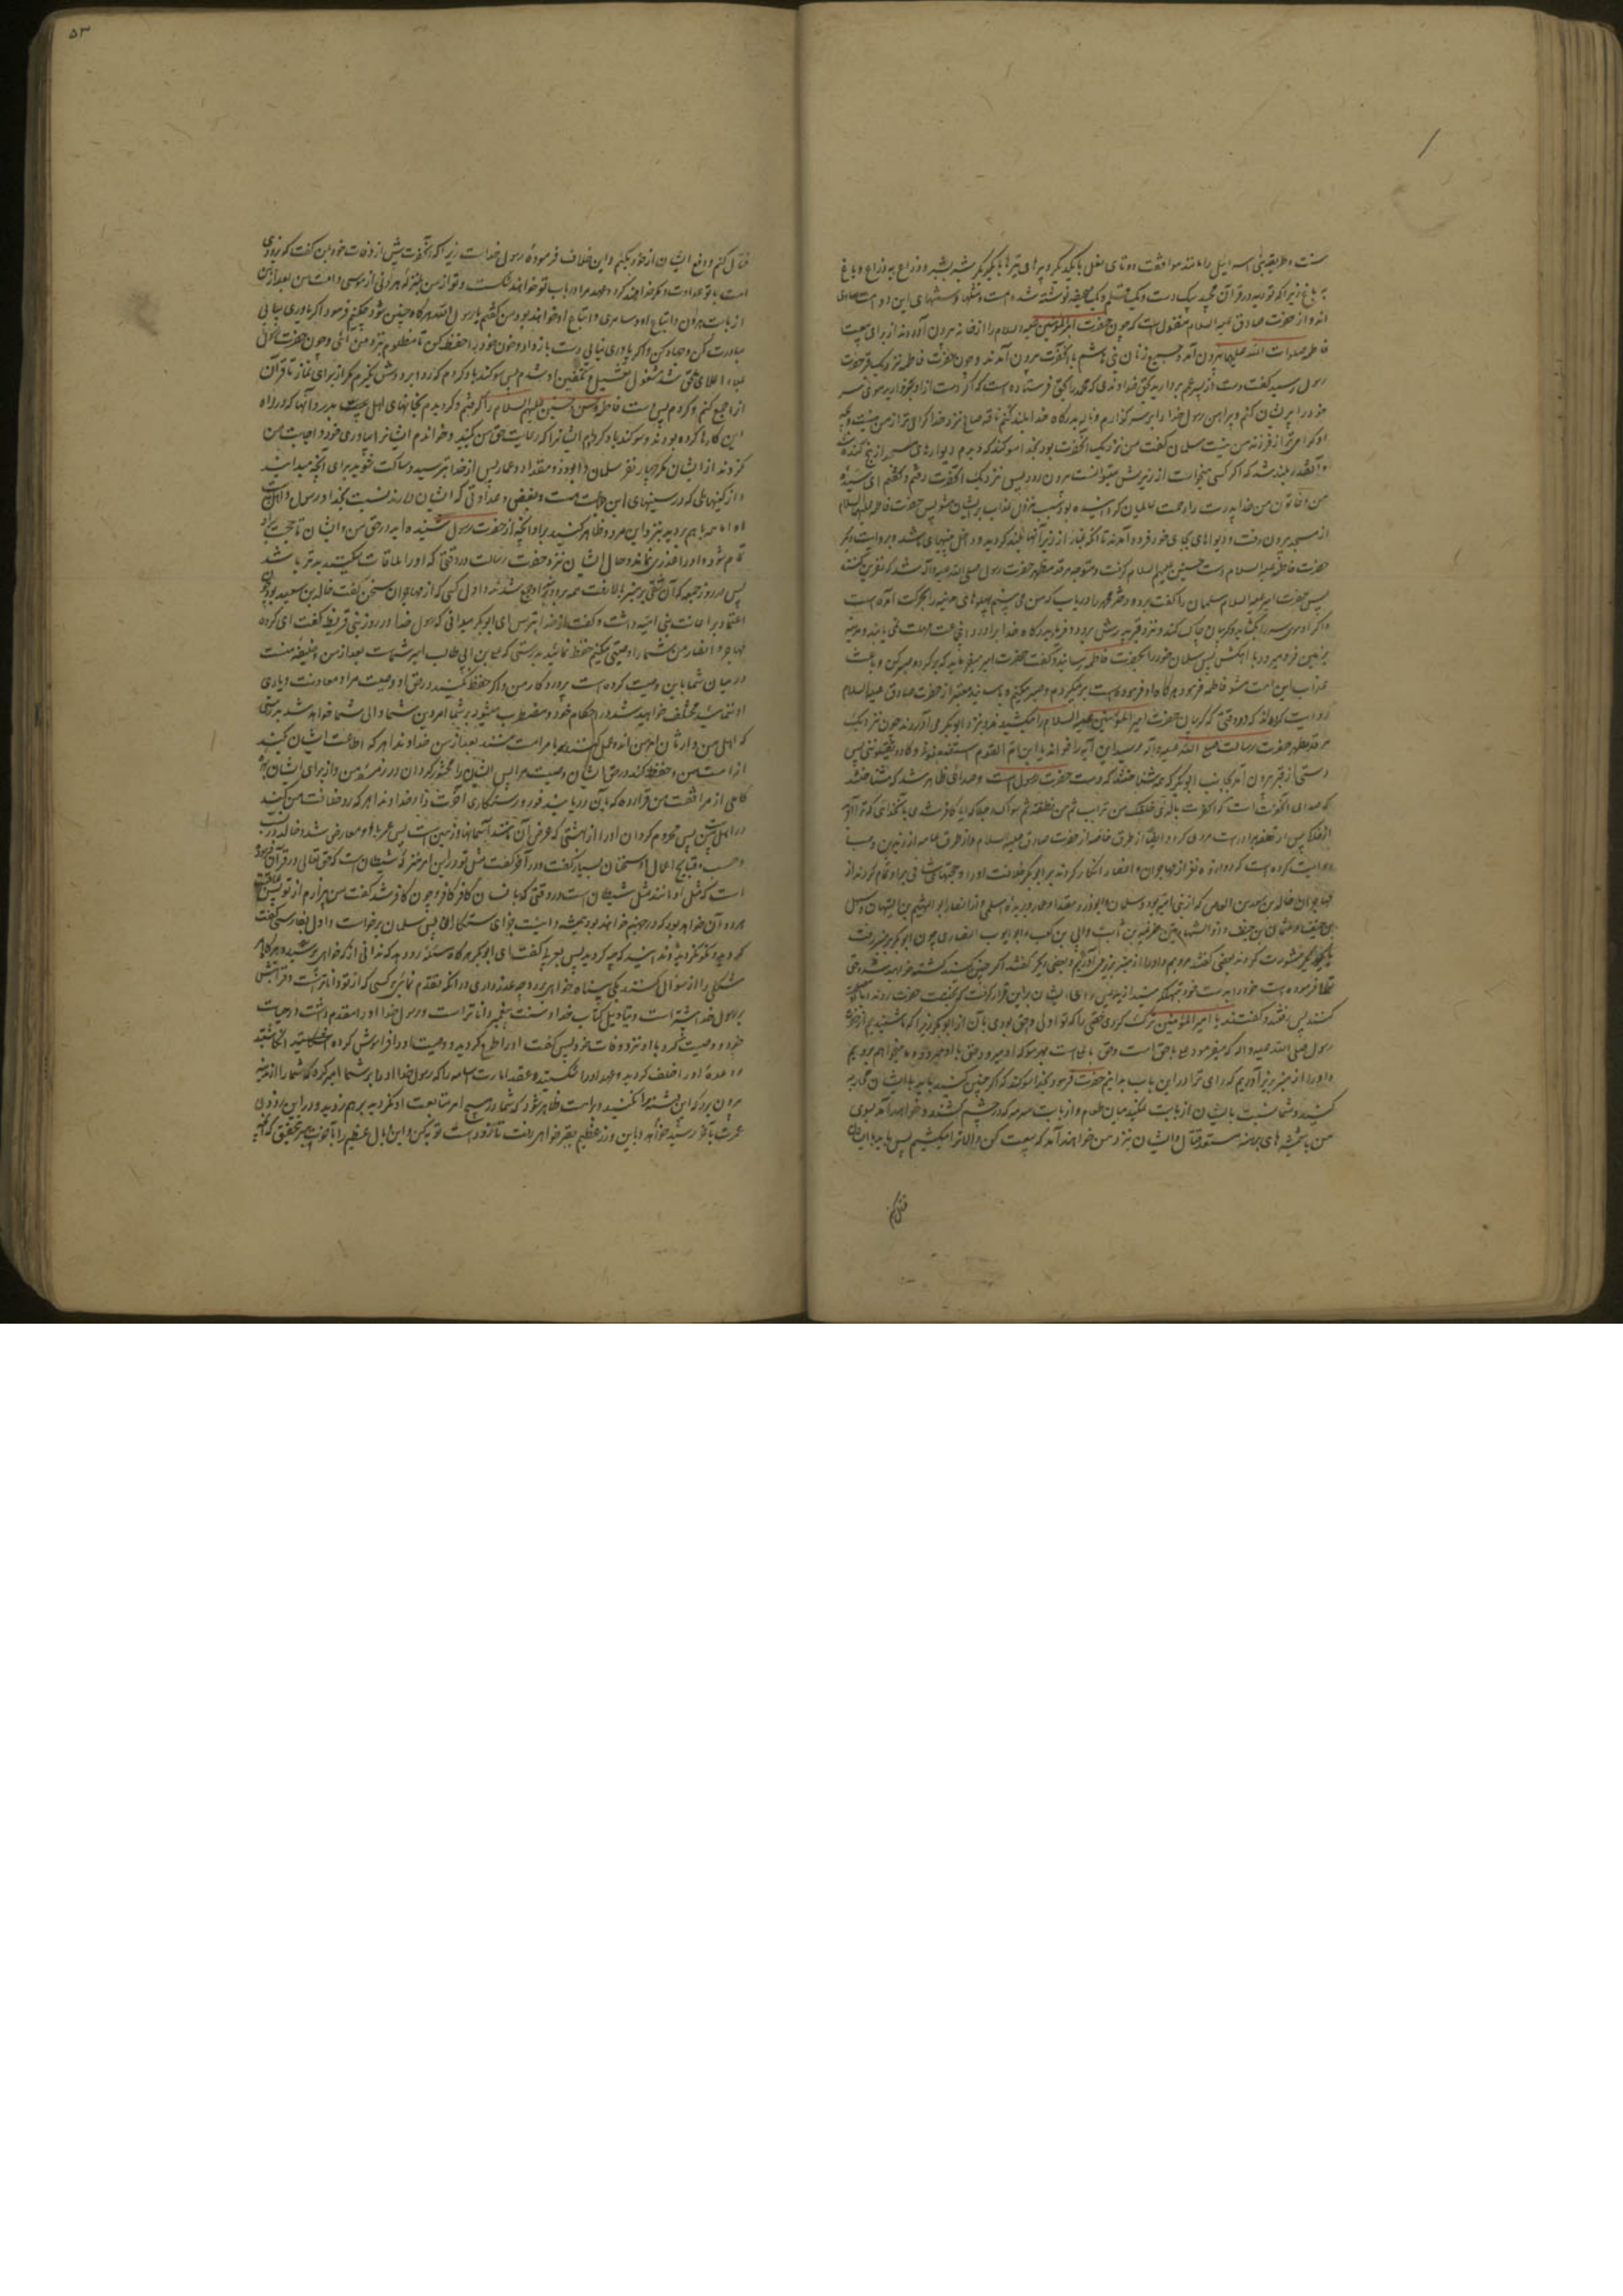 سنت و طریقهٔ بنی اسرائیل را مانند موافقت دو تای نعل با یکدیگر و پرهای تیرها با یکدیگر شبر بشبر و ذراع به ذراع و باع
به باع زیرا که توریه و قرآن مجید بیک دست و یک قلم و یک صحیفه نوشته شده است و مثلها و سنتهای این دو امت مساوی
اند و از حضرت صادق علیه السلام منقولست که چون حضرت امیرالمؤمنین علیه السلام را از خانه بیرون آوردند از برای بیعت
فاطمه صلوات الله علیها بیرون آمد و جمیع زنان بنی هاشم با آنحضرت بیرون آمدند و چون حضرت فاطمه نزدیک قبر حضرت
رسول رسید گفت دست از پسر عمم بردارید بحق خداوندی که محمد را بحق فرستاده است که اگر دست از او برندارید موی سر
خود را پریشان کنم و پیراهن رسول خدا را بر سر گذارم و ناله بدرگاه خدا بلند کنم ناقه صالح نزد خدا گرامی تر از من نیست و بچه
او گرامی تر از فرزند من نیست سلمان گفت من نزدیک آنحضرت بودم بخدا سوگند که دیدم دیوارهای مسجد از بیخ کنده شد
و آنقدر بلند شد که اگر کسی میخواست از زیرش میتوانست بیرون رود پس نزدیک آنحضرت رفتم و گفتم ای سیدهٔ
من و خاتون من خدا پدرت را رحمت عالمیان گردانیده بود سبب نزول عذاب بر ایشان مشو پس حضرت فاطمه علیها السلام
از مسجد بیرون رفت و دیوارهای بجای خود فرود آمدند تا آنکه غبار از زیر آنها بلند گردید و داخل بینیهای ما شد و بروایت دیگر
حضرت فاطمه علیه السلام دست حسنین علیهم السلام گرفت و متوجه مرقد مطهر حضرت رسول صلی الله علیه و آله شد که نفرین کند
پس حضرت امیر علیه السلام سلمان را گفت برو و دختر محمد را دریاب که من می بینم پهلوهای مدینه را بحرکت آمده است
و اگر او موی سر را بگشاید و گریبان چاک کند و نزد قبر پدرش رود و فریاد بدرگاه خدا برآورد
بزمین فرو میرود با اهلش پس سلمان خود را بحضرت فاطمه رسانید و گفت حضرت امیر میفرماید که برگرد و صبر کن و باعث
عذاب این امت مشو فاطمه فرمود هرگاه او فرموده است بر میگردم و صبر میکنم و بسند معتبر از حضرت صادق علیه السلام
روایت کرده اند که در وقتی که گریبان حضرت امیرالمؤمنین علیه السلام را میکشیدند و نزد ابوبکر می آوردند چون نزدیک
مرقد مطهر حضرت رسالت صلی الله علیه و آله رسید این آیه را خواند یا ابن ام ان القوم استضعفونی و کادوا یقتلوننی پس
دستی از قبر بیرون آمد بجانب ابوبکر که همه شناختند که دست حضرت رسول است و صدائی ظاهر شد که شناختند
که صدای آنحضرت است که اکفرت بالذی خلقک من تراب ثم من نطفة ثم سواک رجلا که آیا کافر شدی با آنخدائی که ترا آفرید
از خاک پس از نطفه پس ترا درست مردی کرد و ایضا از طرق خاصه از حضرت صادق علیه السلام و از طرق عامه از زید بن وهب
روایت کرده است که دوازده نفر از مهاجران و انصار انکار کردند بر ابوبکر خلافت او را و حجتهای شافی بر او تمام کردند از
مهاجران خالد بن سعید بن العاص که از بنی امیه بود و سلمان و ابوذر و مقداد و عمار و بریده اسلمی و از انصار ابوالهیثم بن التیهان و سهل
بن حنیف و عثمان بن حنیف و ذوالشهادتین خزیمة بن ثابت و ابی بن کعب و ابو ایوب انصاری چون ابوبکر بر منبر رفت
با یکدیگر مشورت کردند بعضی گفتند برویم و او را از منبر بزیر آوریم و بعضی دیگر گفتند اگر چنین کنید کشته خواهید شد و حق
تعالی فرموده است خود را بدست خود بتهلکه میندازید پس رای ایشان بر این قرار گرفت که بخدمت حضرت روند و با او مصلحت
کنند پس رفتند و گفتند یا امیرالمؤمنین ترک کردی حقی را که تو اولی و احق بودی بآن از ابوبکر زیرا که ما شنیدیم از حضرت
رسول صلی الله علیه و آله که میفرمود علی با حق است و حق با علی است بهر سو که او میرود حق با او میرود و ما میخواهم برویم
و او را از منبر بزیر آوریم که رای ترا در این باب بدانیم حضرت فرمود بخدا سوگند که اگر چنین کنید باید با ایشان محاربه
کنید و شما نسبت بایشان از بابت نمکید میان طعام و از بابت سرمه که در چشم کشند و خواهید آمد بسوی
من با شمشیرهای برهنه مستعد قتال و ایشان بنزد من خواهند آمد که بیعت کن والا ترا میکشیم پس باید با ایشان
قتال کنم
۵۳
قتال کنم و دفع ایشان از خود بکنم و این خلاف فرمودهٔ رسول خداست زیرا که آنحضرت پیش از وفات خود بمن گفت که بزودی
امت با تو عداوت و مکر خواهند کرد و عهد مرا در باب تو خواهند شکست و تو از من بمنزلهٔ هرونی از موسی و امت من بعد از من
از بابت هرون و اتباع او و سامری و اتباع او خواهند بود من گفتم یا رسول الله هرگاه چنین شود چکنم فرمود اگر یاوری بیابی
مبادرت کن و جهاد کن و اگر یاوری نیابی دست باز دار و خون خود را حفظ کن تا مظلوم نزد من آئی و چون حضرت رسول
بملاء اعلای ملحق شد مشغول تغسیل و تکفین او شدم پس سوگند یاد کردم که ردا بر دوش نگیرم مگر از برای نماز تا قرآن
را جمع کنم و کردم پس دست فاطمه و حسن و حسین علیهم السلام را گرفتم و گردیدم بخانهای اهل بدر و آنها که در راه
این کارها کرده بودند و سوگند یاد کردم ایشانرا که رعایت حق من بکنید و خواندم ایشانرا بیاوری خود و اجابت من
نکردند از ایشان مگر چهار نفر سلمان و ابوذر و مقداد و عمار پس از خدا بترسید و ساکت شوید برای آنچه میدانید
از کینهائی که در سینهای این جماعت هست و بغض و عداوتی که ایشان دارند نسبت بخدا و رسول و اهل بیت
او اما همه باهم بروید بنزد این مرد و ظاهر کنید بر او آنچه از حضرت رسول شنیده اید در حق من و ایشان تا حجت بر او
تمام شود و او را عذری نماند و حال ایشان نزد حضرت رسالت در وقتی که او را ملاقات میکنند بدتر باشد
پس در روز جمعه که آن شقی بر منبر بالا رفت همه بر دور منبر او جمع شدند و اول کسی که از مهاجران سخن گفت خالد بن سعید بود چون
اعتماد بر اعانت بنی امیه داشت و گفت از خدا بترس ای ابوبکر میدانی که رسول خدا در روز بنی قریظه گفت ای گروه
مهاجر و انصار من شما را وصیتی میکنم حفظ نمائید بدرستی که علی بن ابی طالب امیر شماست بعد از من و خلیفه منست
در میان شما باین وصیت کرده است پروردگار من و اگر حفظ نکنید در حق او وصیت مرا و معاونت و یاری
او ننمائید مختلف خواهید شد در احکام خود و مضطرب میشود بر شما امر دین شما و والی شما خواهد شد بدترین
که اهل من وارثان امر من اند و عمل کنندگان بامر امت منند بعد از من خداوندا هر که اطاعت ایشان کند
از امت من و حفظ کند در حق ایشان وصیت مرا پس ایشان را محشور گردان در زمرهٔ من و از برای ایشان بهرهٔ
کاملی از مرافقت من قرار ده که بآن دریابند فوز و رستگاری آخرت را خداوندا هر که بد خلافت من کند
در اهل بیت من پس محروم گردان او را از بهشتی که عرض آن مانند آسمانها و زمین است پس عمر با او معارض شد و خالد در باب
حسب و قبایح اعمال او سخنان بسیار گفت و در آخر گفت مثل تو در این امر مثل شیطان است که حق تعالی در قرآن فرموده
است که مثل او مانند مثل شیطان است در وقتی که بانسان گفت کافر شو و چون کافر شد گفت من بیزارم از تو پس عاقبت
هر دو آن خواهد بود که در جهنم خواهند بود همیشه و اینست جزای ستمکاران پس سلمان برخاست و اول بفارسی گفت
کردید و نکردید و ندانید که چه کردید پس بعربی گفت ای ابوبکر هرگاه مسئلهٔ رو دهد که ندانی از که خواهی پرسید و هرگاه از
مشکلی را از تو سؤال کنند بکی پناه خواهی برد و چه عذر داری در آنکه تقدم نمائی بر کسی که از تو داناتر است و قرابتش
برسول خدا بیشتر است و بتاویل کتاب خدا و سنت پیغمبر داناتر است و رسول خدا او را مقدم داشت در حیات
خود و وصیت کرد باو نزد وفات خود پس سخن او را طرح کردید و وصیت او را فراموش کردید
وعدهٔ او را خلف کردید و عهد او را شکستید و عقد امارت اسامه را که رسول خدا او را بر شما امیر کرده که شما را از مدینه
بیرون برد که این فتنه را نکنید و بر امت ظاهر شود که شما در هیچ امر متابعت او نکردید برهم زدید و در این زودی
عمرت بآخر رسید خواهد و باین وزر عظیم بقبر خواهی رفت تا زود است توبه کن و این وبال عظیم را بآخرت مبر بتحقیق که آنچه